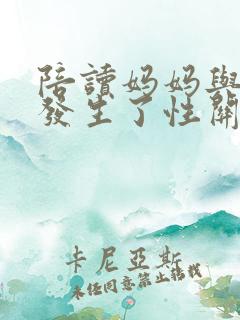 陪讀媽媽與
發生了性關
卡尼亞斯
未经同意禁止转载